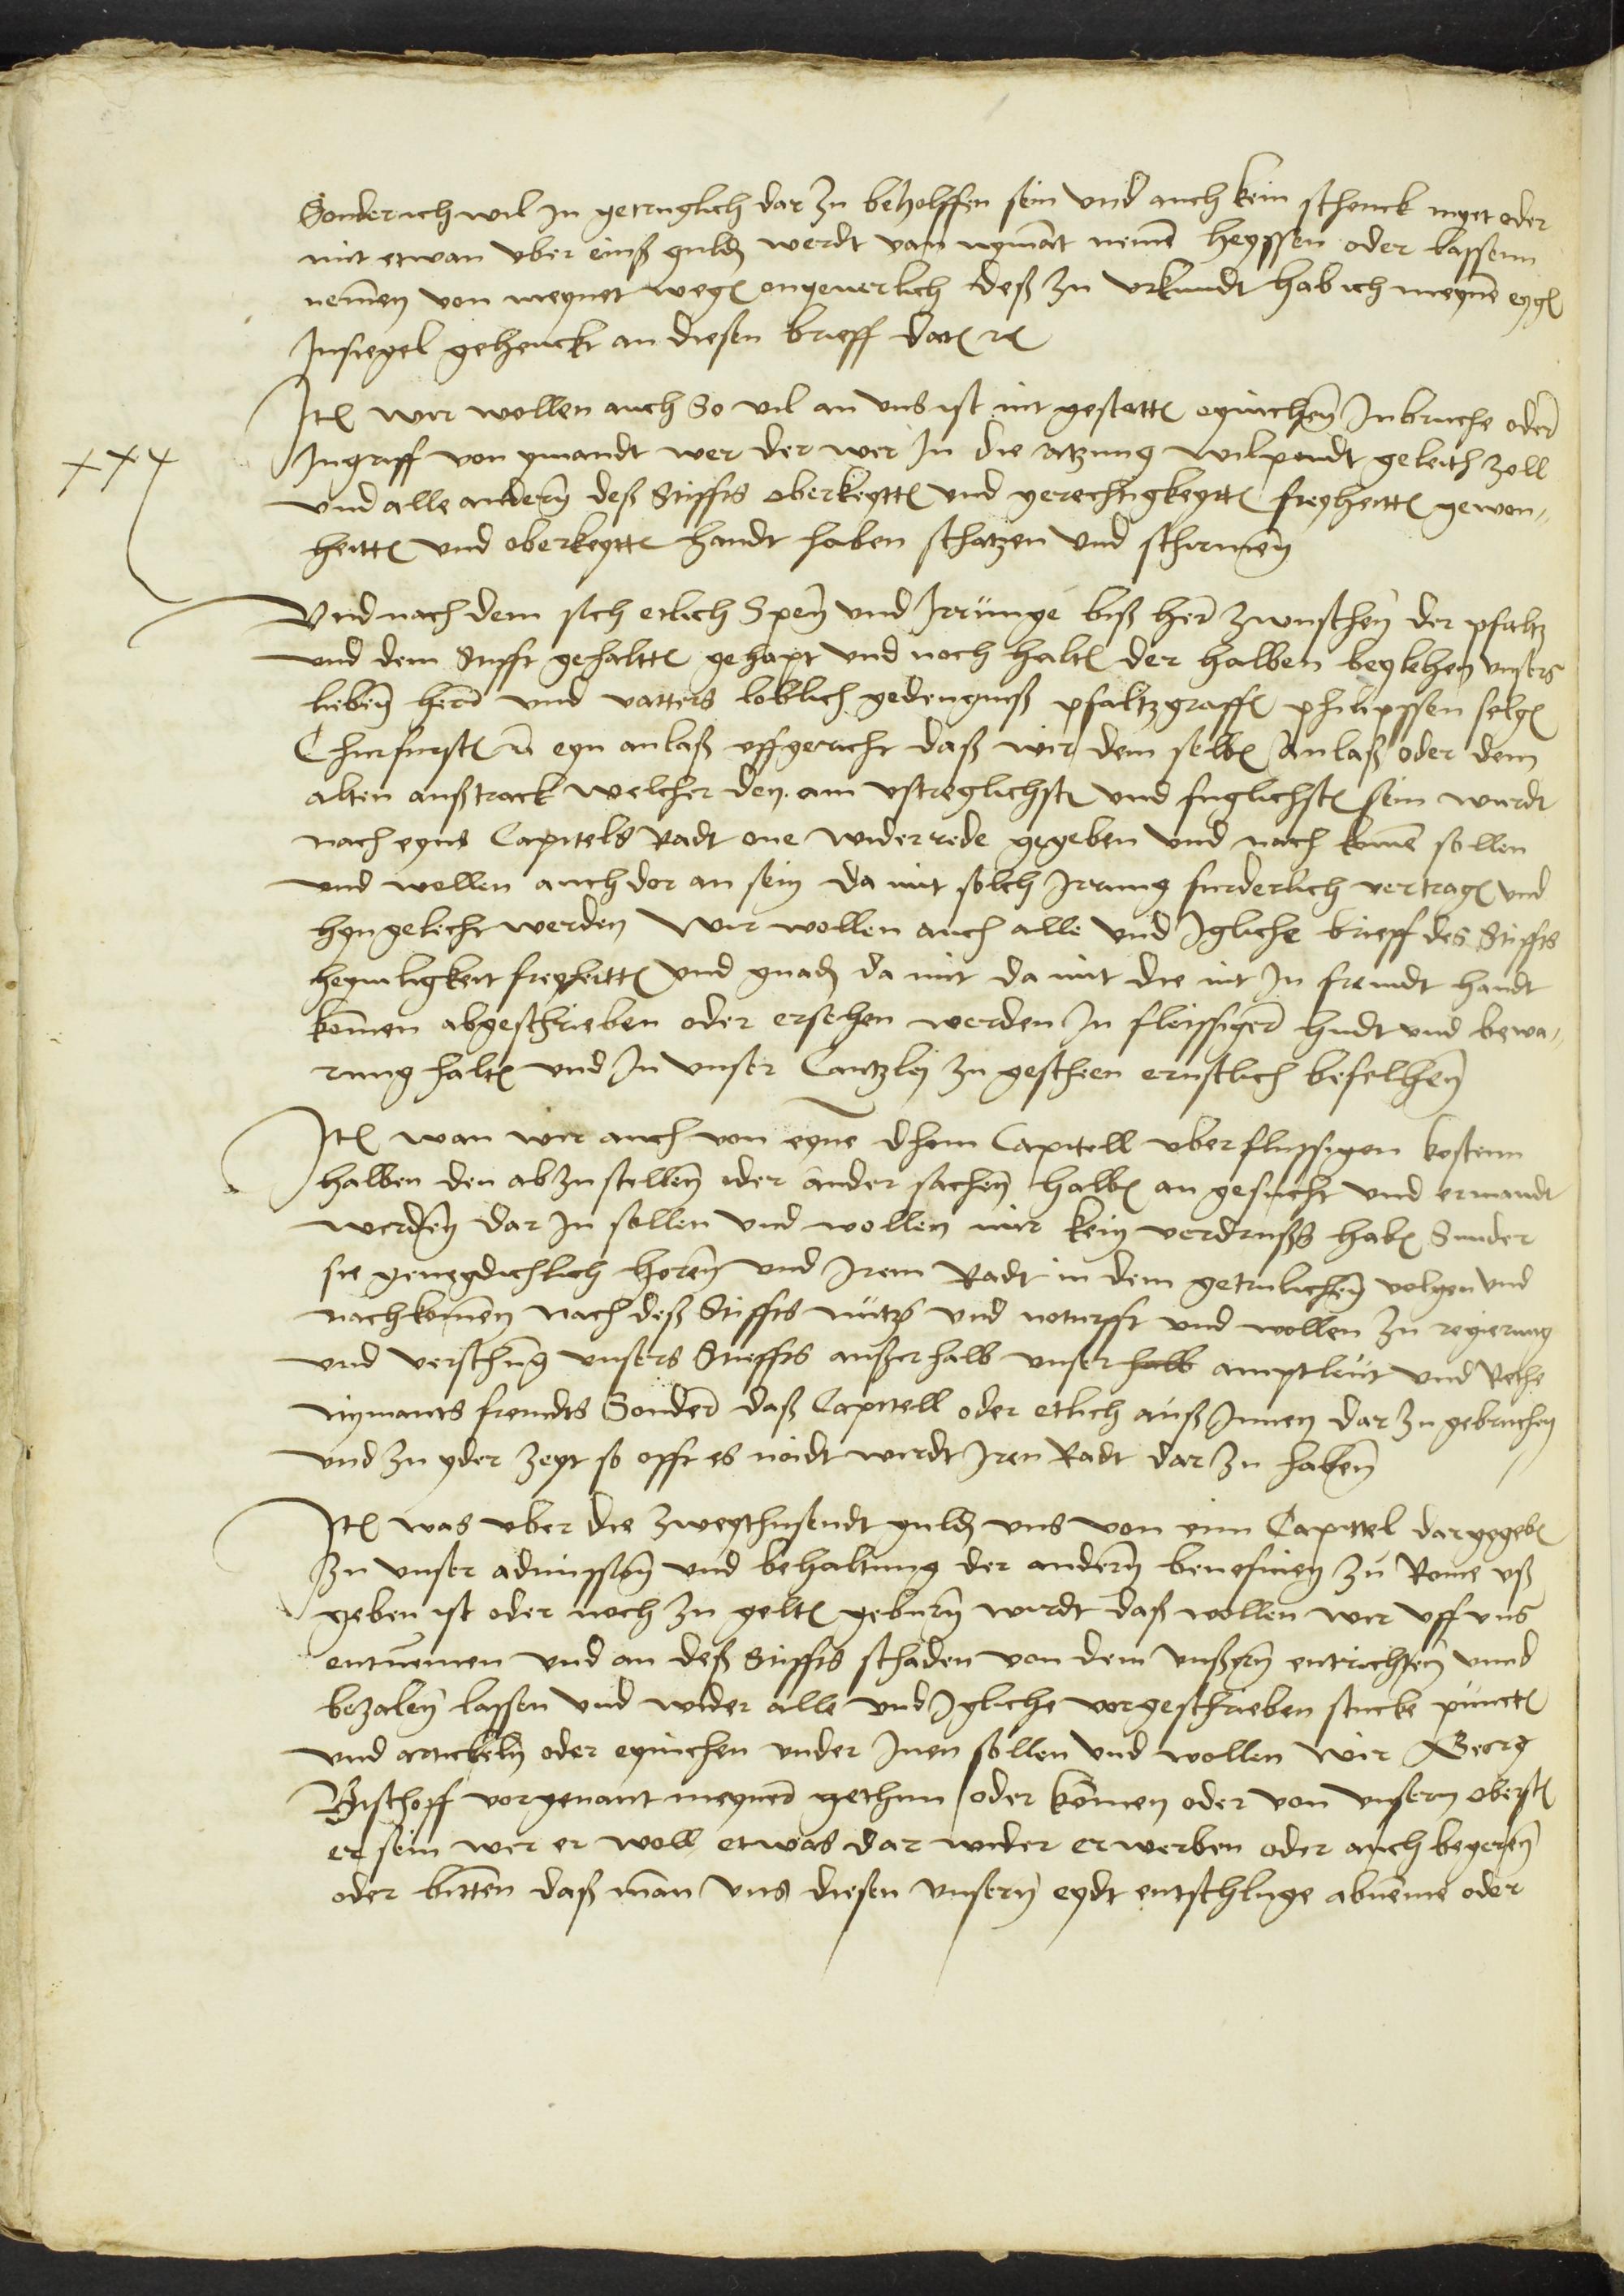 Sonder ich wil in getruglich dar zu beholffen sein vnd auch kein schenck myet oder
nit etwan vber einß guld werdt van nymãt nemẽ heyssen oder lassenn
nemen von meynet weg ongeuerlich deß zu vrkundt hab ich meynẽ eyg
Insiegel gehenckt an diesen brieff dat
Jt wir wollen auch So vil an vns ist nit gestatt eynichen Inbruche oder
Ingriff von ymandt wer der wer In die atzung wilpandt geleith zoll
xxx
vnd alle andern deß Stiffts oberkeytt vnd gerechtigkeytt freyheitt gewon„
heitt vnd oberkeytt handt haben schatzen vnd schirmen
Vnd nach dem sich etlich Spen vnd Irrunge biß her zwuschen der pfaltz
vnd dem Stifft gehaltt gehapt vnd noch halt der halben beylehen vnsers
lieben hern vnd vatters loblich gedengnuß pfaltzgraff philipssen selg
Churfurst eyn anlaß vffgericht daß wir dem selb anlaß oder dem
alten außtrack welcher den am vstreglichst vnd fuglichst sein wurdt
nach eyns Capitels Radt one widerrede gegeben vnd nach komẽ sollen
vnd wellen auch dor an sein da mit solch Irrung furderlich vertrag vnd
hyngelecht werden Wir wollen auch alle vnd Igliche brieff des Stiffts
heymlichkeit freyheitt vnd gnad da mit da mit die nit In fremdt handt
komen abgeschrieben oder ersehen werden In fleissiger hudt vnd bewa„
rung halt vnd In vnser Cantzley zu gescheen ernstlich befelhen
Jt wan wir auch von eynẽ dhom Capittell vberflussigen kostenn
halben den abzustellen oder ander sachen halb an gesucht vnd ermandt
werden dar In sollen vnd wollen wir kein verdrußs hab Sunder
sie genegdichlich horen vnd Irem Radt in dem getrulichen volgen vnd
nachkomen nach deß Stiffts nutz vnd noturfft vnd wollen zu regierung
vnd verschũg vnsers Stieffts ausserhalb vnser halb amptleut vnd Rethe
nymants fremdts Sonder daß Capittell oder etlich auß Innen dar zu gebruchen
vnd zu yder zeyt so offt es noidt wirdt Iren Radt dar zu haben
Jt was vber die zweythusendt guld vns von eim Capittel dar gegeb
zu vnser admission vnd behaltung der andern beneficien zu Rome vß
geben ist oder noch zu gelt geburn wirdt daß wollen wir vff vns
entnemen vnd an deß Stiffts schaden von dem vnßern entrichten vnnd
bezalen lassen vnd wider alle vnd Igliche vorgeschrieben stucke punct
vnd artickeln oder eynichen vnder Inen sollen vnd wollen wir Georg
Bischoff vorgenant meyner gethun oder komen oder von vnsern oberst
er sein wer er woll etwas dar wider erwerben oder auch begeren
oder bitten daß man vns diesen vnsern eydt entschluge abneme oder